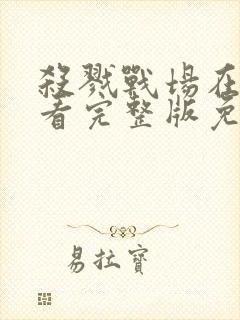 殺戮戰場在
看完整版免
易拉寶